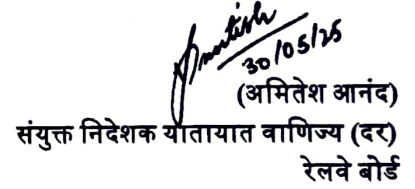 30/05/25
(अमितेश आनंद)
संयुक्त निदेशक यातायात वाणिज्य (दर)
रेलवे बोर्ड